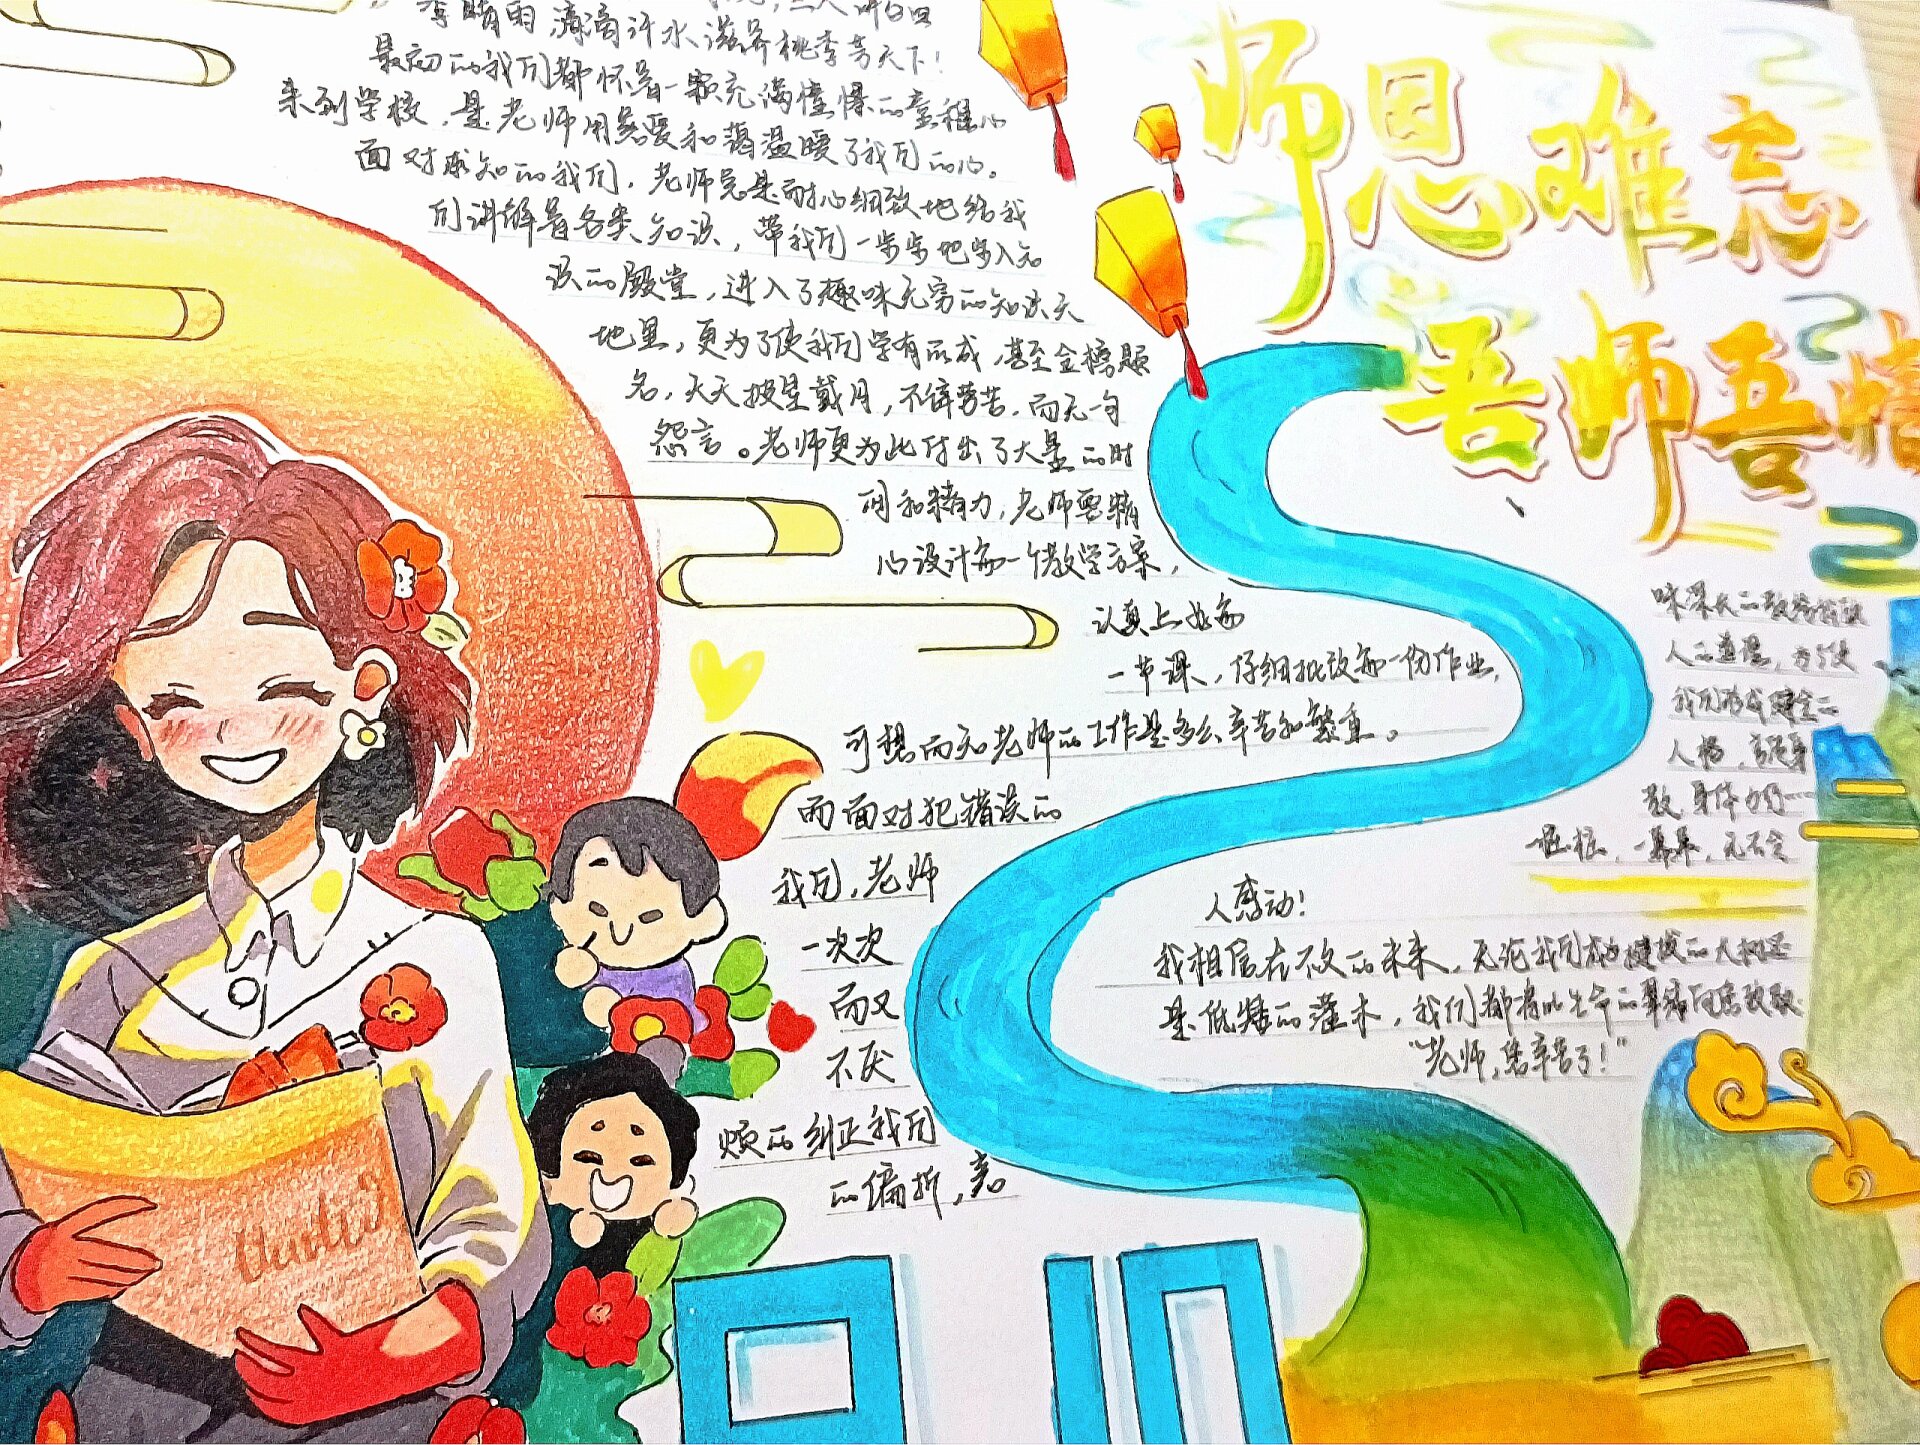 师恩难忘
吾师吾情
李晴雨,滴滴汗水滋养桃李芳天下!
最初的我们都怀着一颗充满憧憬的童稚心
来到学校,是老师用慈爱和蔼温暖了我们的心。
面对求知的我们,老师总是耐心细致地给我
们讲解着各类知识,带我们一步步地步入知
识的殿堂,进入了趣味无穷的知识天
地里,更为了使我们学有所成,甚至金榜题
名,天天披星戴月,不辞劳苦,而无一句
怨言。老师更为此付出了大量的时
间和精力,老师要精
心设计每一个教学方案,
认真上好每
一节课,仔细批改每一份作业,
可想而知老师的工作是多么辛苦和繁重。
而面对犯错误的
我们,老师
一次次
而又
不厌
烦的纠正我们
的偏折,亲
人的道理,为了使
我们形成健全的
人格,言传身
教,身体力行
桩桩,一幕幕,无不令
人感动!
我相信在不久的未来,无论我们成为挺拔的大树还
是低矮的灌木,我们都将以生命的翠绿向您致敬
“老师,您辛苦了!”